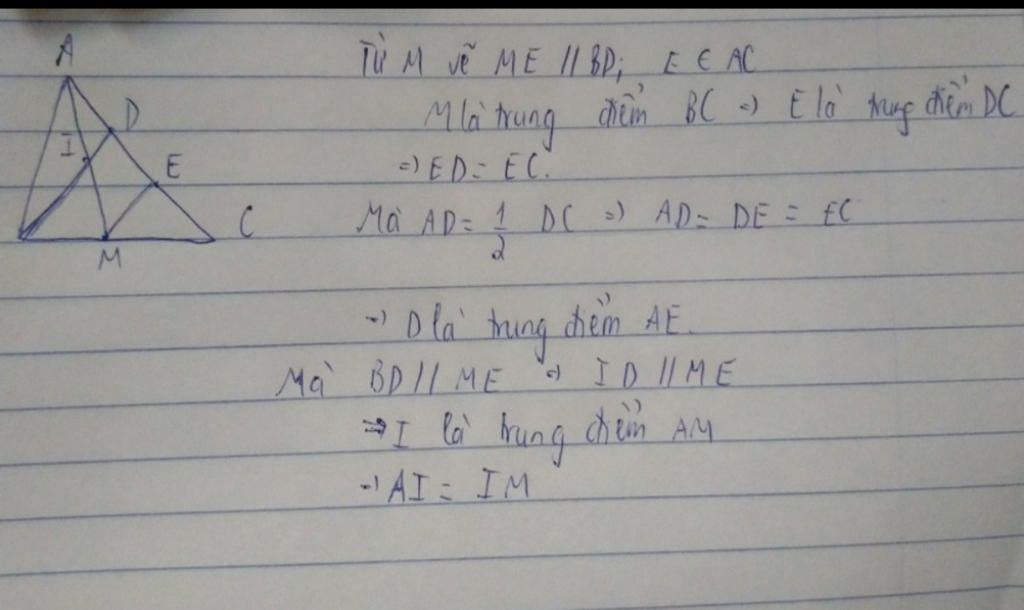 A
D
I
E
C
M
Từ M vẽ ME // BD; E ∈ AC
M là trung điểm BC => E là trung điểm DC
=> ED = EC.
Mà AD = 1/2 DC => AD = DE = EC
=> D là trung điểm AE.
Mà BD // ME => ID // ME
=> I là trung điểm AM
=> AI = IM